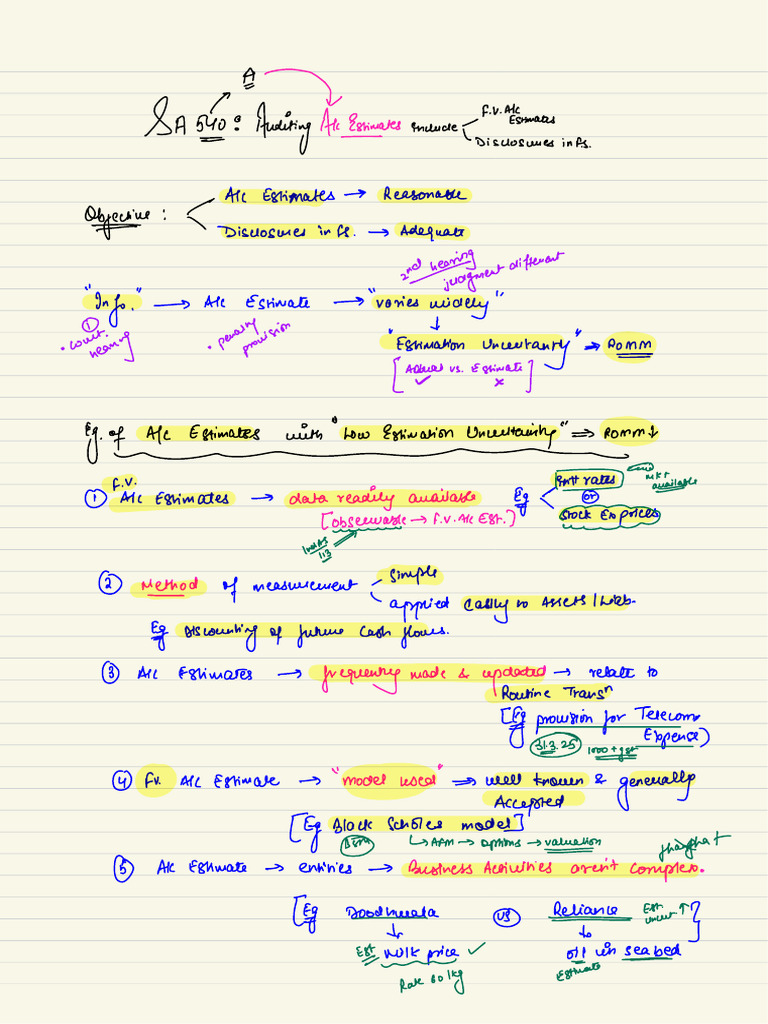 A
SA 540: Auditing A/c Estimates include
F.V. A/c Estimates
Disclosures in Fs.
Objective:
A/c Estimates → Reasonable
Disclosures in Fs. → Adequate
2nd hearing
judgment different
"Info." → A/c Estimate → "varies widely"
① • court hearing
• penalty provision
"Estimation Uncertainty" ⇒ ROMM
[Actual vs. Estimate]
✓ ×
Eg. of A/c Estimates with "Low Estimation Uncertainty" ⇒ ROMM↓
F.V.
① A/c Estimates → data readily available Eg
Int rates
mkt available
or
Stock Ex prices
[observable → F.V. A/c Est.)
IndAS 113
② Method of measurement
Simple
applied easily to Assets/Liab.
Eg Discounting of future cash flows.
③ A/c Estimates → frequently made & updated → relate to
Routine Transⁿ
[Eg provision for Telecom
Expense)
31.3.25 1000+gst
④ Fv. A/c Estimate → "model used" ⇒ well known & generally
Accepted
[Eg Black Scholes model]
BSM ↳ AFM → options → valuation
⑤ A/c Estimate → entities → Business Activities aren't complex.
[Eg Doodhwala vs Reliance
Est. Uncert ↑
Est milk price ✓
oil in seabed
Rate 80/kg
Estimate